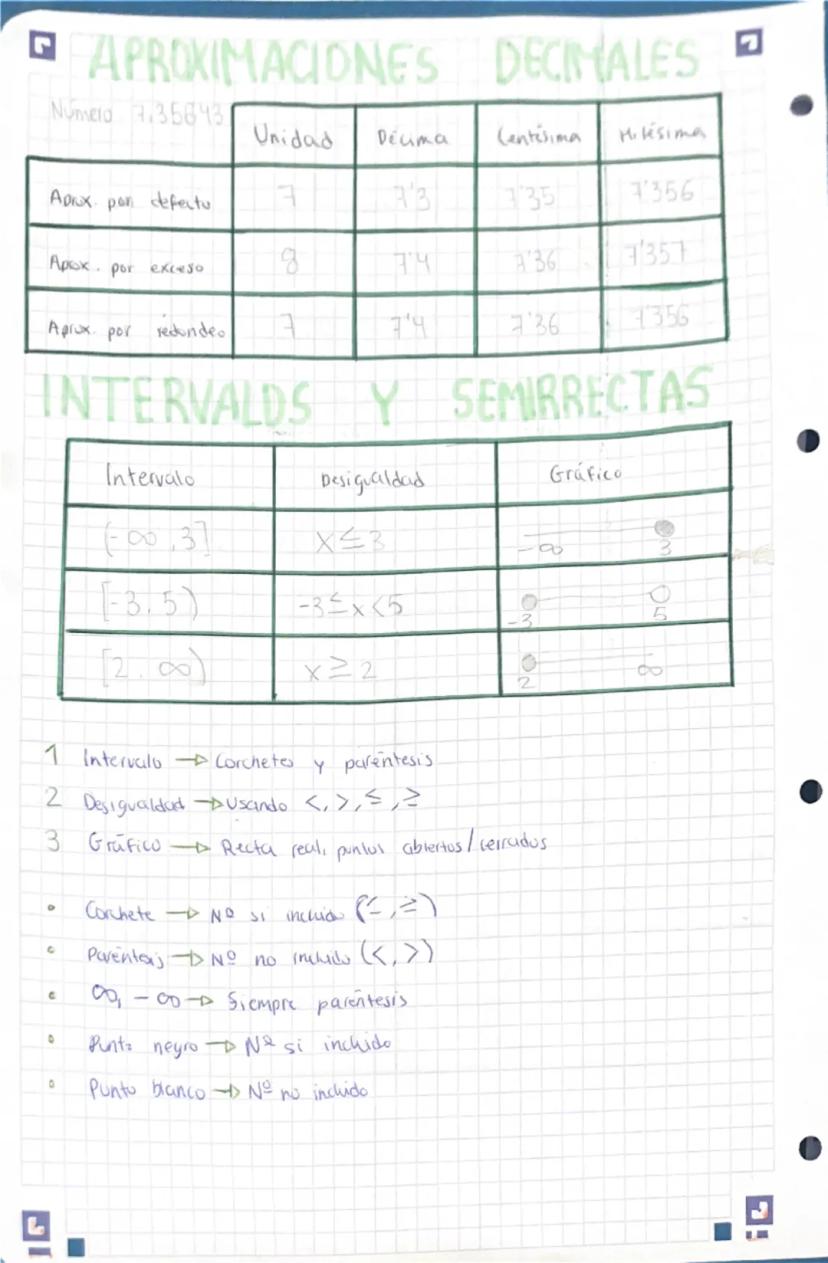 APROXIMACIONES DECIMALES
Número 7,35643 Unidad Décima Centésima Milésima
Aprox. por defecto 7 7'3 7'35 7'356
Aprox. por exceso 8 7'4 7'36 7'357
Aprox. por redondeo 7 7'4 7'36 7'356
INTERVALOS Y SEMIRRECTAS
Intervalo Desigualdad Gráfico
(-∞,3] x≤3 -∞ 3
[-3,5) -3≤x<5 -3 5
[2,∞) x≥2 2 ∞
1 Intervalo → Corchetes y paréntesis
2 Desigualdad → Usando <,>,≤,≥
3 Gráfico → Recta real, puntos abiertos/cerrados
• Corchete → Nº si incluido (≤,≥)
• Paréntesis → Nº no incluido (<,>)
• ∞, -∞ → Siempre paréntesis
• Punto negro → Nº si incluido
• Punto blanco → Nº no incluido